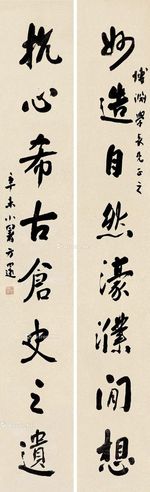 博渊學長先生正之
妙造自然濠濮間想
抗心希古倉史之遺
辛未小暑方